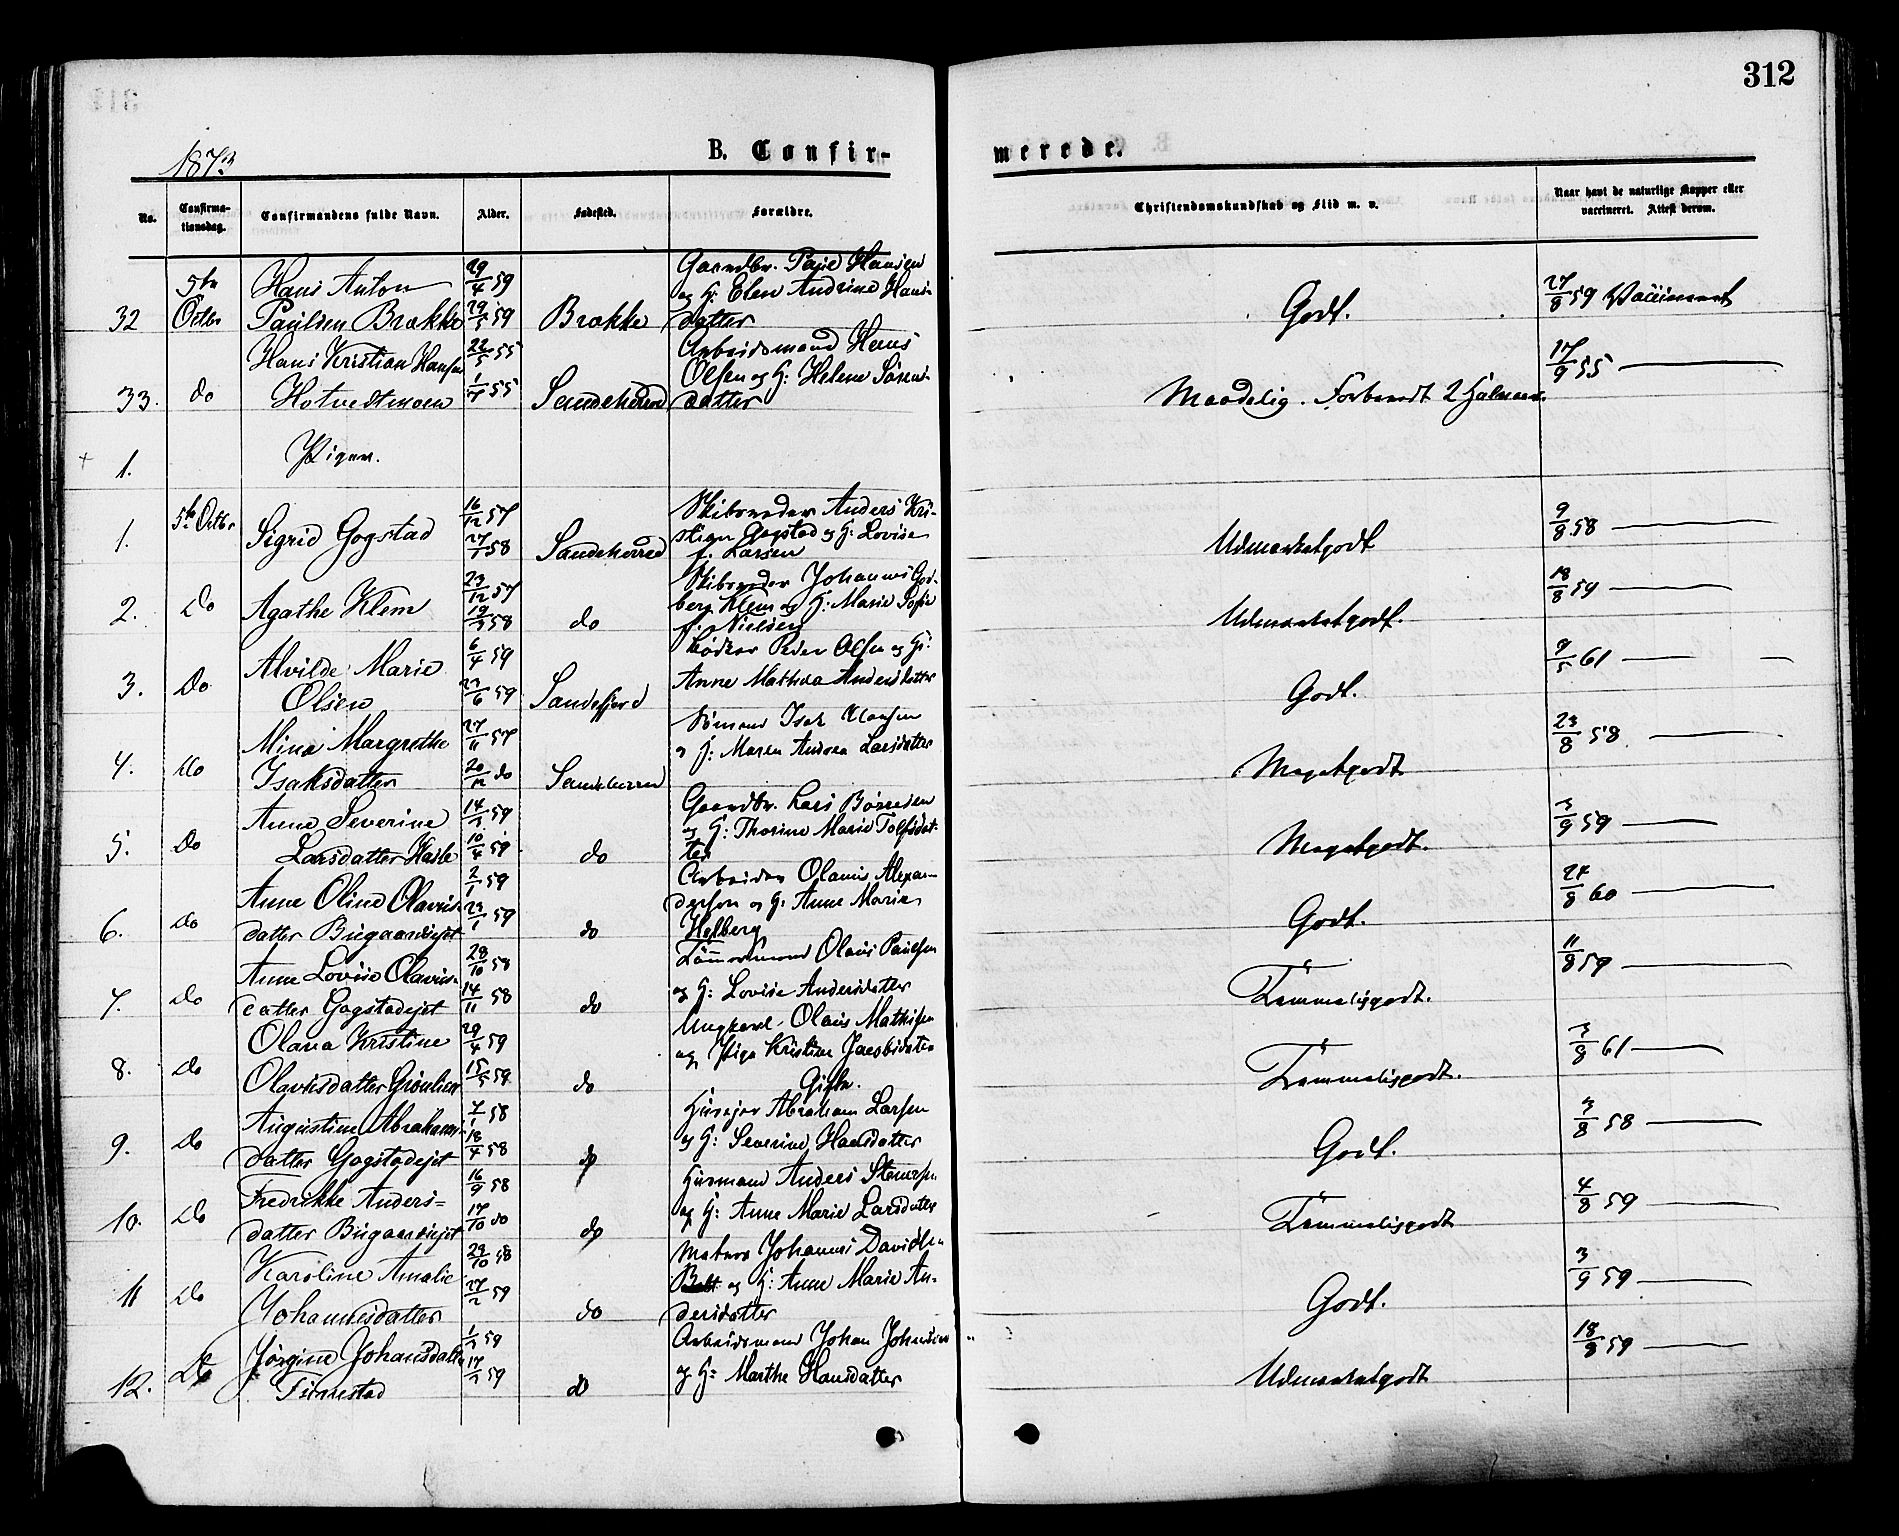 312
1873
B. Confir-
merede.
No.
Confirma-
tionsdag.
Confirmandens fulde Navn.
Alder.
Fødested.
Forældre.
Christendomskundskab og Flid m. v.
Naar havt de naturlige Kopper eller
vaccineret. Attest derom.
32 5te Octbr Hans Anton Paulsen Brække 29/4 59 29/5 59 Brække Gaardbr. Hansen og H: Elen Andrine Hans-datter Godt. 27/8 59 Vaccineret
33. do Hans Kristian Hansen Hotvedtmoen 22/5 55 1/7 55 Sandeherred Arbeidsmand Hans Olsen og H: Helene Sørens-datter Maadelig. 17/9 55
1. Piger.
1. 5te Octbr Sigrid Gogstad 16/12 57 27/1 58 Sandeherred Skibsreder Anders Kri-stian Gogstad og H: Lovise f. Larsen Udmærketgodt 9/8 58
2. Do Agathe Klem 23/12 57 19/3 58 do Skibsreder Johannes Klem og H: Marie Sofie f. Nielsen Udmærketgodt. 18/8 59
3. Do Alvilde Marie Olsen 6/4 59 23/6 59 Sandefjord Peder Olsen og H: Anne Mathea Andersdatter Godt. 9/5 61
4. Do Mina Margrethe Isaksdatter 27/11 57 20/12 do Sandeherred Sømand Isak Hansen og H: Maren Andrea Larsdatter Megetgodt 23/8 58
5. Do Anne Severine Larsdatter Hasle 14/3 59 10/4 59 do Gaardbr. Lars Børresen og H: Thorine Marie Tolfsdat-ter Megetgodt. 3/9 59
6. Do Anne Oline Olavus-datter Bugaardsejet 2/1 59 23/1 59 do Arbeider Olavus Alexan-dersen og H: Anne Marie Helberg Godt. 24/8 60
7. Do Anne Lovise Olavus-datter Gogstadejet 28/10 58 14/11 58 do Tømmermand Olaus Paulsen og H: Lovise Andersdatter Temmeliggodt. 11/8 59
8. Do Olava Kristine Olavusdatter 29/4 59 15/5 59 do Ungkarl Olaus Mathisen og Pige Kristine Jacobsdatter Gifte. Temmeliggodt. 3/8 61
9. Do Augustine Abrahams-datter Gogstadejet 7/1 58 18/4 58 do Husejer Abraham Larsen og H: Severine Hansdatter Godt. 3/8 58
10. Do Fredrikke Anders-datter Bugaardsejet 16/9 58 17/10 do do Husmand Anders Stenersen og H: Anne Marie Larsdatter Temmeliggodt 4/8 59
11 Do Karoline Amalie Johannesdatter 29/10 58 27/2 59 do Matros Johannes Davidsen og H: Anne Marie An-dersdatter Godt. 3/9 59
12. Do Jørgine Johansdatter Finnestad 1/1 59 17/3 59 do Arbeidsmand Johan Johnsen og H: Marthe Hansdatter Udmærketgodt 18/8 59